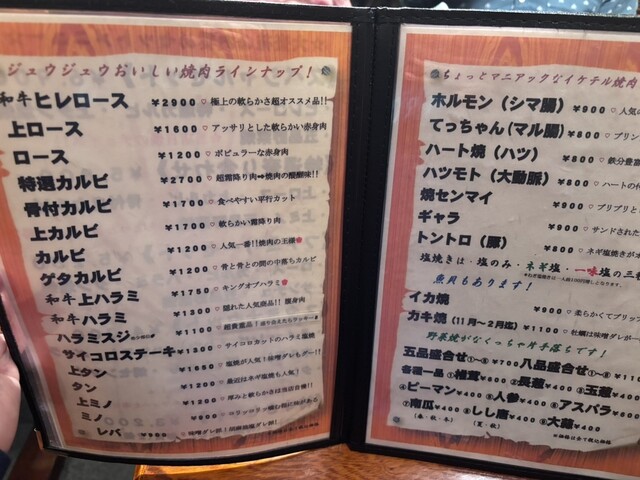 ジュウジュウおいしい焼肉ラインナップ！
和牛ヒレロース ¥2900 ♡極上の軟らかさ超オススメ品!!
上ロース ¥1600 ♡アッサリとした軟らかい赤身肉
ロース ¥1200 ♡ポピュラーな赤身肉
特選カルビ ¥2700 ♡超霜降り肉➡焼肉の醍醐味!!
骨付カルビ ¥1700 ♡食べやすい平行カット
上カルビ ¥1700 ♡軟らかい霜降り肉
カルビ ¥1200 ♡人気一番!!焼肉の王様
ゲタカルビ ¥1200 ♡骨と骨との間の中落ちカルビ
和牛上ハラミ ¥1750 ♡キングオブハラミ
和牛ハラミ ¥1300 ♡隠れた人気商品!! 腹身肉
ハラミスジ ¥1100 ♡超貴重品!
サイコロステーキ ¥1300 ♡サイコロカットのハラミ塩焼
上タン ¥1680 ♡塩焼が人気!味噌ダレも
タン ¥1200 ♡最近はネギ塩焼も人気!
上ミノ ¥1200 ♡厚みと軟らかさは当店自慢!!
ミノ
レバ
ちょっとマニアックなイケテル焼肉
ホルモン（シマ腸） ¥900 ♡人気の
てっちゃん(マル腸) ¥800 ♡プリン
ハート焼（ハツ） ¥800 ♡鉄分豊
ハツモト（大動脈） ¥800 ♡ハートの
焼センマイ ¥900 ♡プリプリと
ギャラ ¥900 ♡サンドされた
トントロ（豚） ¥800 ♡ネギ塩焼きが
塩焼きは・塩のみ・ネギ塩・一味塩の三
魚貝もあります！
イカ焼 ¥900 ♡柔らかくてプリッ
カキ焼（11月〜2月迄） ¥1100 ♡牡蠣は味噌ダレ
野菜焼がなくっちゃ片手落ちです！
五品盛合せ①〜⑤ ¥700 八品盛合せ①〜⑧ ¥110
各種一品 ①椎茸 ¥600 ②長葱 ¥400 ③玉葱 ¥400
④ピーマン ¥400 ⑤人参 ¥400 ⑥アスパラ ¥600
⑦南瓜 ¥400 ⑧しし唐 ¥400 ⑨大蒜 ¥400